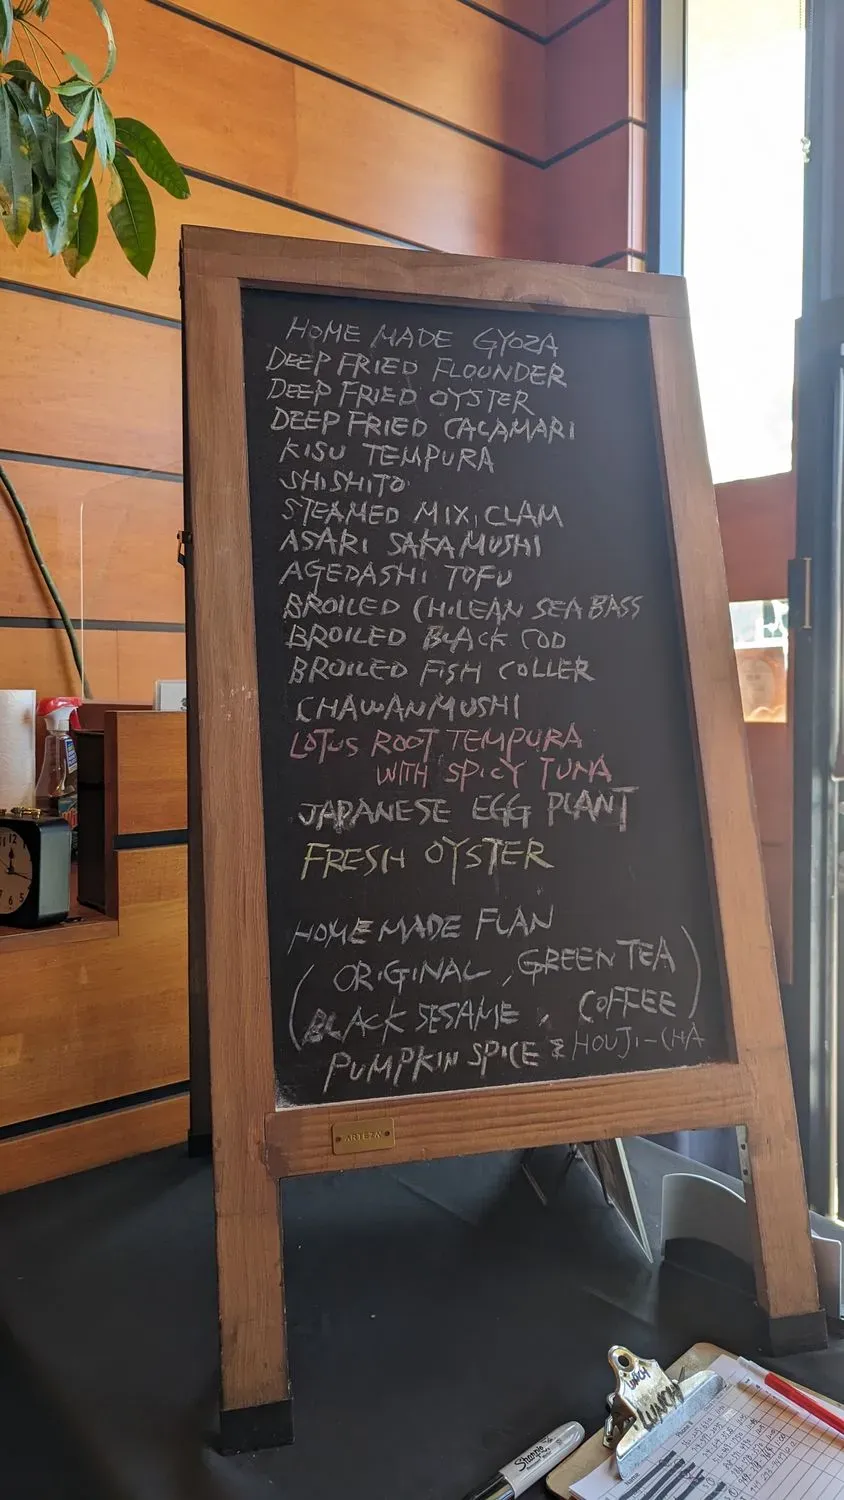 HOME MADE GYOZA
DEEP FRIED FLOUNDER
DEEP FRIED OYSTER
DEEP FRIED CALAMARI
KISU TEMPURA
SHISHITO
STEAMED MIX, CLAM
ASARI SAKAMUSHI
AGEDASHI TOFU
BROILED CHILEAN SEA BASS
BROILED BLACK COD
BROILED FISH COLLER
CHAWANMUSHI
LOTUS ROOT TEMPURA
WITH SPICY TUNA
JAPANESE EGG PLANT
FRESH OYSTER
HOME MADE FLAN
( ORIGINAL , GREEN TEA )
( BLACK SESAME , COFFEE )
PUMPKIN SPICE & HOUJI-CHA
ARTEZA
LUNCH
LUNCH
Sharpie
Name